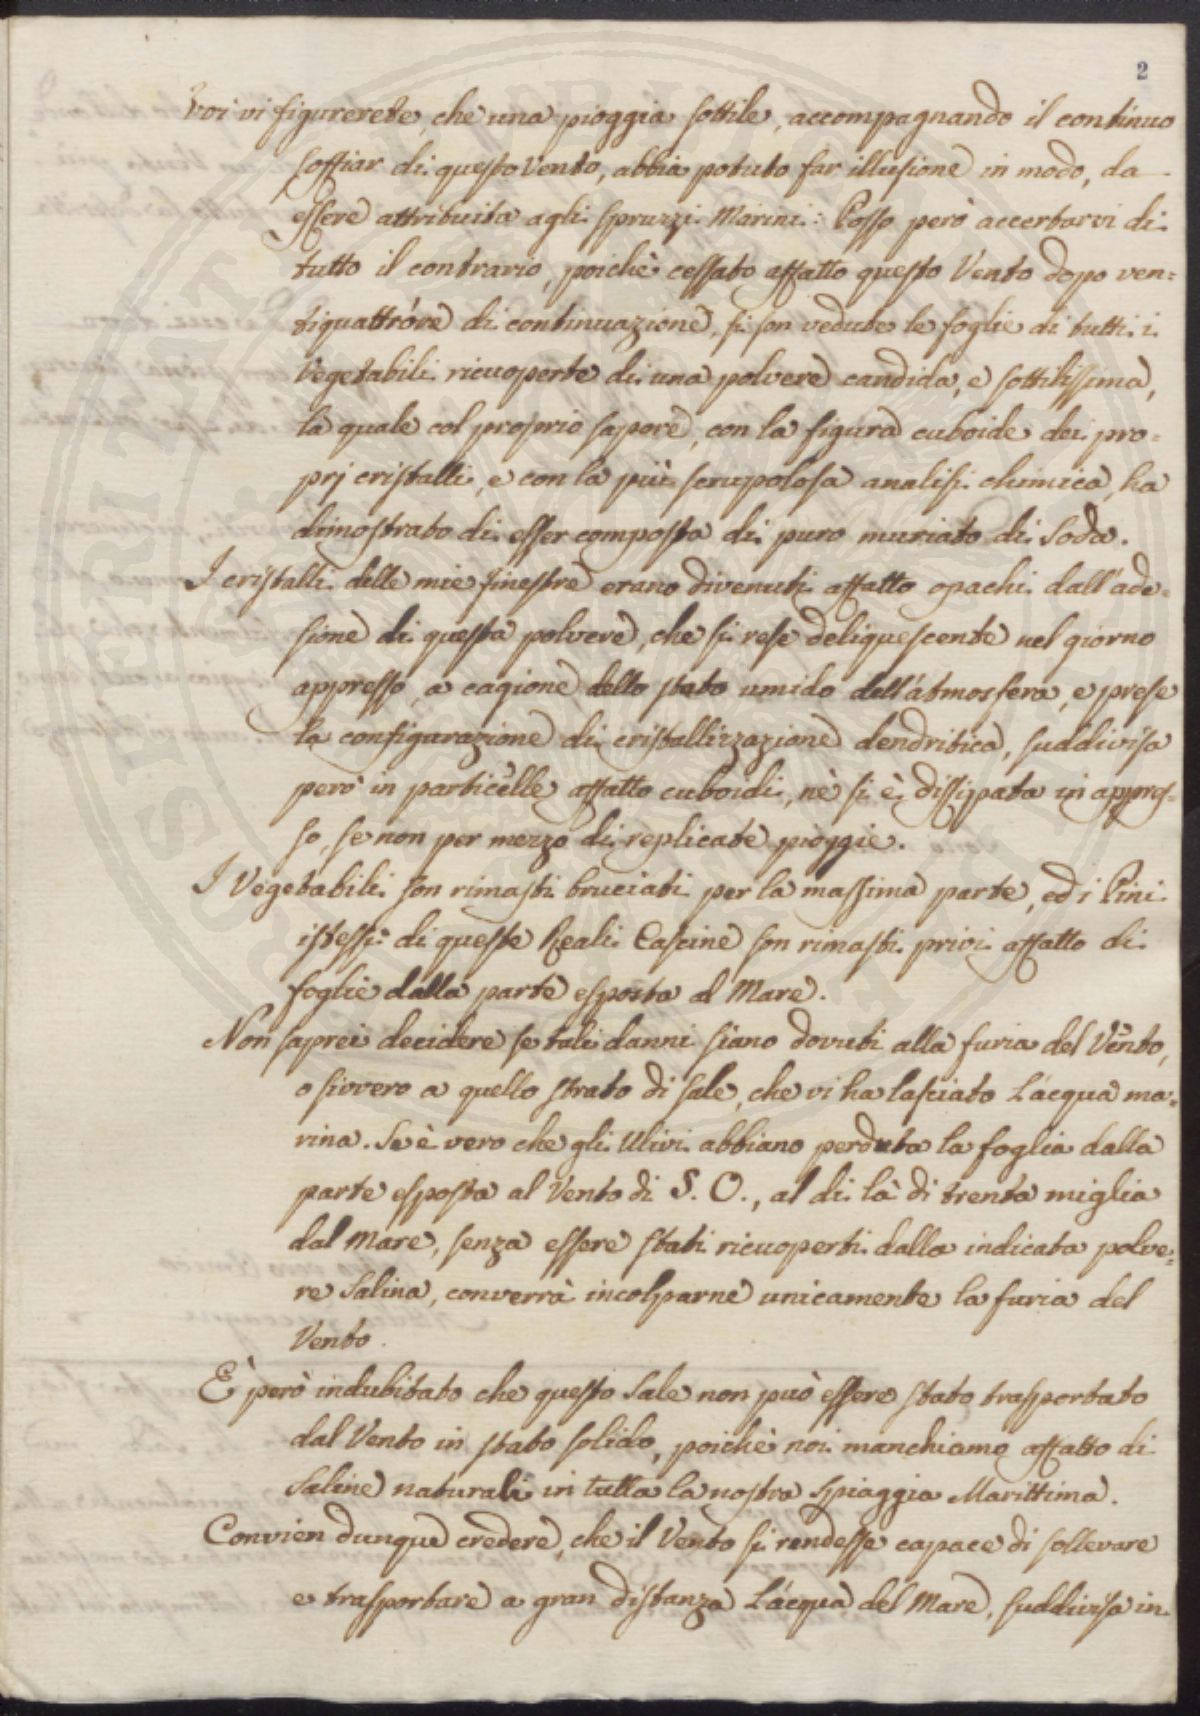 2
voi vi figurerete, che una pioggia sottile, accompagnando il continuo
soffiar di questo Vento, abbia potuto far illusione in modo, da
essere attribuita agli spruzzi Marini: Posso però accertarvi di
tutto il contrario, poichè cessato affatto questo Vento dopo ven=
tiquattr'ore di continuazione, si son vedute le foglie di tutti i
Vegetabili ricuoperte di una polvere candida, e sottilissima,
la quale col proprio sapore, con la figura cuboide dei pro=
prj cristalli, e con la più scrupolosa analisi chimica, ha
dimostrato di esser composta di puro muriato di Soda.
I cristalli delle mie finestre erano divenuti affatto opachi dall'ade=
sione di questa polvere, che si rese deliquescente nel giorno
appresso, a cagione dello stato umido dell'atmosfera, e prese
la configurazione di cristallizzazione dendritica, suddivisa
però in particelle affatto cuboidi, nè si è dissipata in appres=
so, se non per mezzo di replicate pioggie.
I Vegetabili son rimasti bruciati per la massima parte, ed i Pini
istessi di queste Reali Cascine son rimasti privi affatto di
foglie dalla parte esposta al Mare.
Non saprei decidere se tali danni siano dovuti alla furia del Vento,
o sivvero a quello strato di sale, che vi ha lasciato L'acqua ma=
rina. Se è vero che gli Ulivi abbiano perduta la foglia dalla
parte esposta al Vento di S. O., al di là di trenta miglia
dal mare, senza essere stati ricuoperti dalla indicata polve=
re Salina, converrà incolparne unicamente la furia del
Vento.
È però indubitato che questo Sale non può essere stato trasportato
dal Vento in stato solido, poichè noi manchiamo affatto di
Saline naturali in tutta la nostra Spiaggia Marittima.
Convien dunque credere, che il Vento si rendesse capace di sollevare
e trasportare a gran distanza L'acqua del Mare, suddivisa in